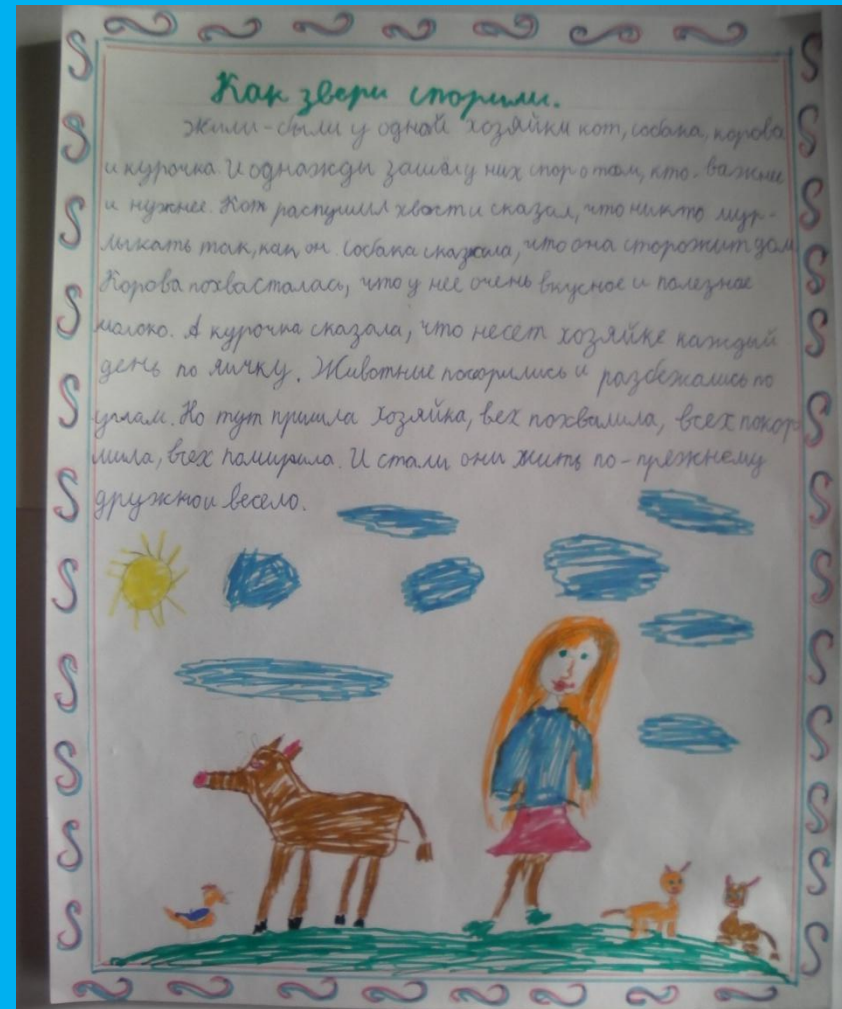 Как звери спорили.
Жили-были у одной хозяйки кот, собака, корова
и курочка. И однажды зашёл у них спор о том, кто важнее
и нужнее. Кот распушил хвост и сказал, что никто мур-
лыкать так, как он. Собака сказала, что она сторожит дом
Корова похвасталась, что у нее очень вкусное и полезное
малоко. А курочка сказала, что несёт хозяйке каждый
день по яичку. Животные поссорились и разбежались по
углам. Но тут пришла хозяйка, вех похвалила, всех покор
мила, всех помирила. И стали они жить по-прежнему
дружно и весело.